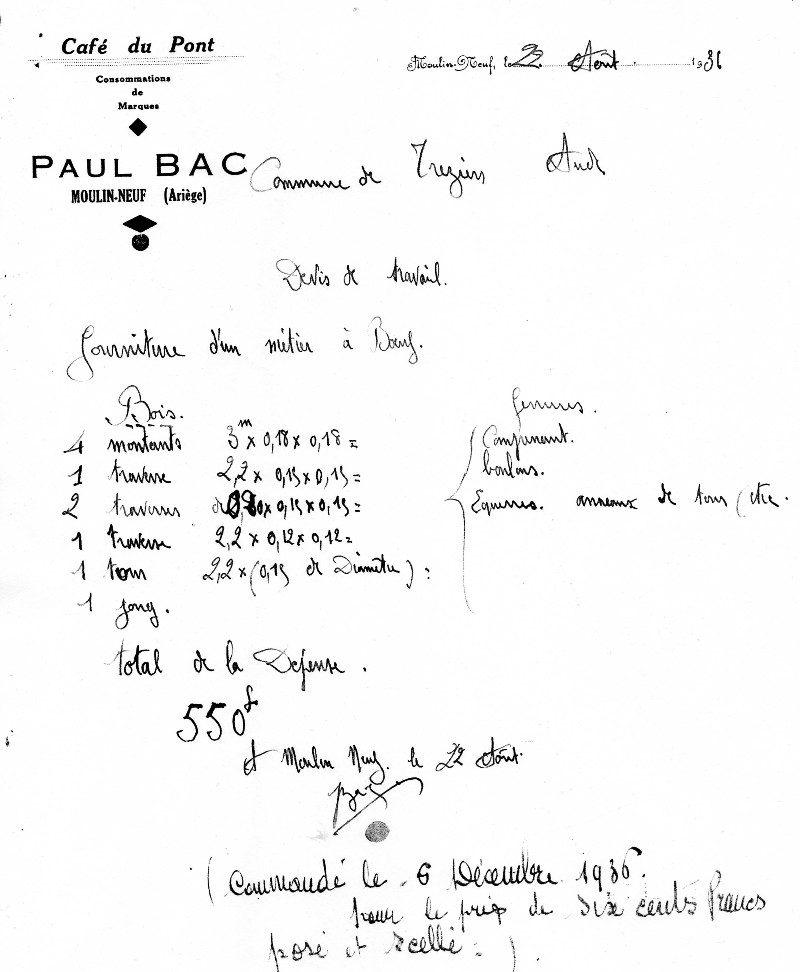 Café du Pont
Consommations
de
Marques
PAUL BAC
MOULIN-NEUF (Ariège)
Moulin-Neuf, le 22 Août 1936
Commune de Treziers Aude
Devis de travail.
fourniture d'un métier à Boeuf.
Bois.
4 montants 3m x 0,18 x 0,18 =
1 traverse 2,2 x 0,15 x 0,15 =
2 traverses de x 0,15 x 0,15 =
1 traverse 2,2 x 0,12 x 0,12 =
1 tour 2,2 x (0,15 de Diamètre) :
1 joug.
ferrures.
Comprenant.
boulons.
Equerres. anneaux de tour (etc.
total de la Dépense.
550f
A Moulin Neuf. le 22 Août.
Bac
(Commandé le 6 Décembre 1936.
pour le prix de six cents francs
posé et scellé.)